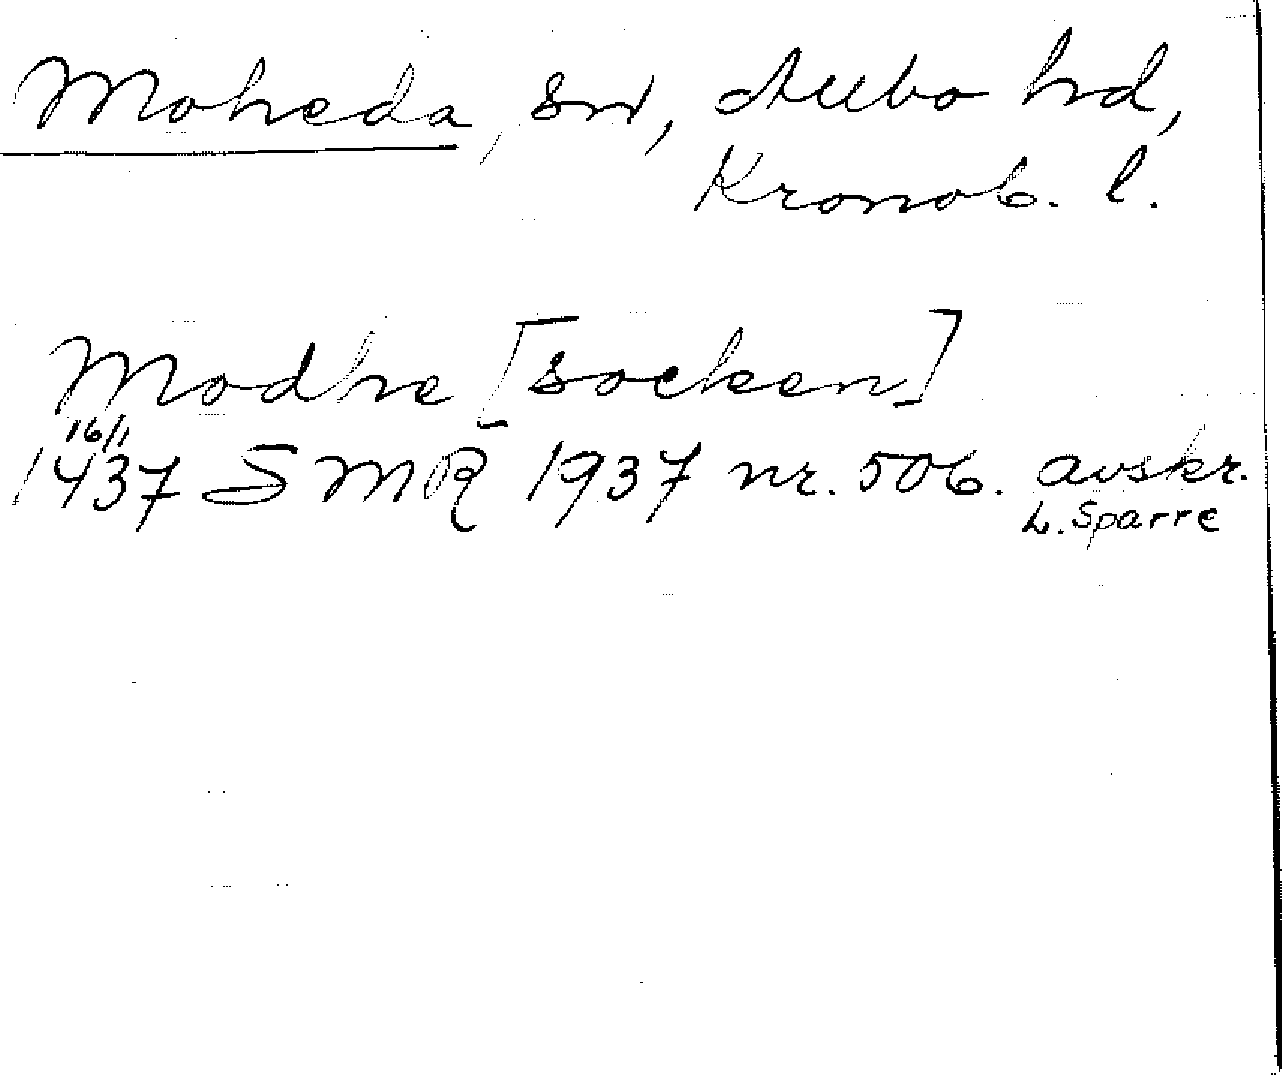 Moheda, sn, Allbo hd,
Kronob. l.
Modhe [socken]
16/1
1437 SMR 1937 nr. 506. avskr.
L. Sparre